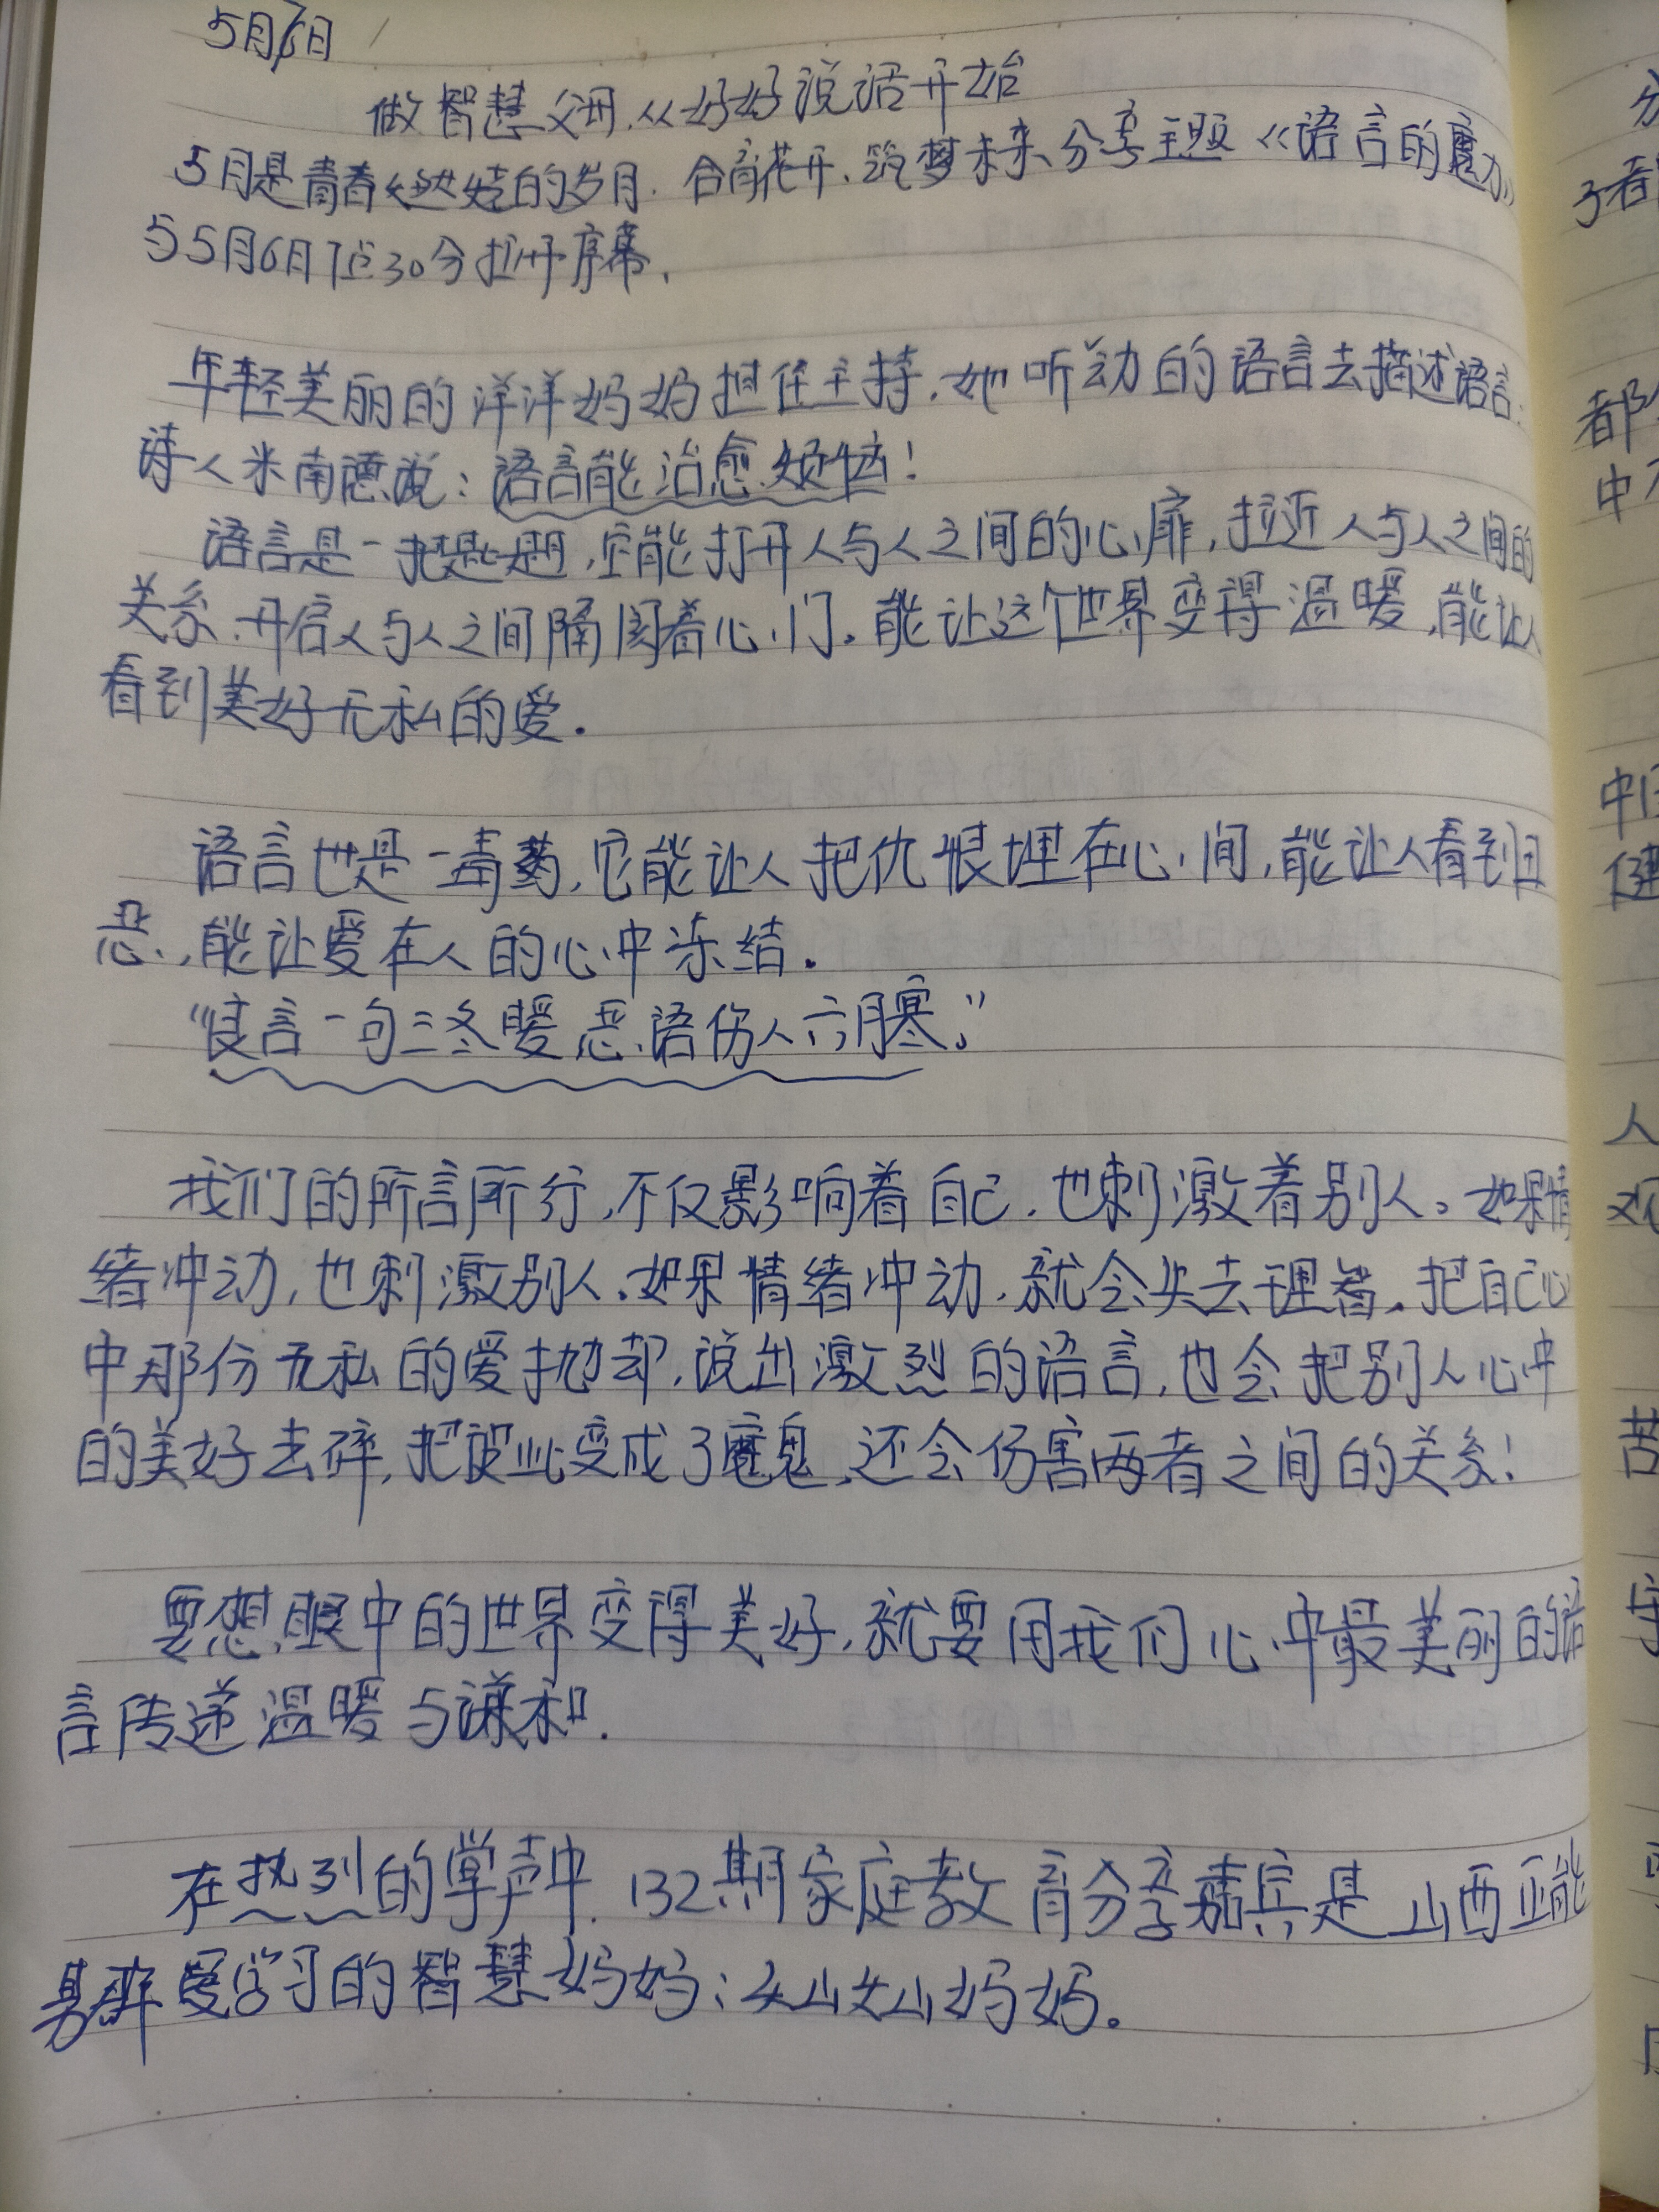 5月6日
做智慧父母.从好好说话开始
5月是青春绽娃的岁月.合育花开.筑梦未来分享主题《语言的魔力》
55月6日7点30分拉开序幕.
年轻美丽的洋洋妈妈担任主持.她听动的语言去描述语言.
诗人米南德说:语言能治愈烦恼!
语言是一把匙题,它能打开人与人之间的心扉,拉近人与人之间的
关系.开启人与人之间隔阂着心门.能让这个世界变得温暖,能让人
看到美好无私的爱.
语言也是一毒药,它能让人把仇恨埋在心间,能让人看到丑
恶,能让爱在人的心中冻结.
“良言一句三冬暖恶语伤人六月寒.”
我们的所言所行,不仅影响着自己.也刺激着别人。如果情
绪冲动,也刺激别人.如果情绪冲动.就会失去理智.把自己心
中那份无私的爱抛却,说出激烈的语言,也会把别人心中
的美好去碎,把彼此变成了魔鬼,还会伤害两者之间的关系!
要想眼中的世界变得美好,就要用我们心中最美丽的语
言传递温暖与谦和.
在热烈的掌声中.132期家庭教育分享嘉宾是山西正能
爱学习的智慧妈妈:妈妈。
分
了看
都
中
健
人
观
苦